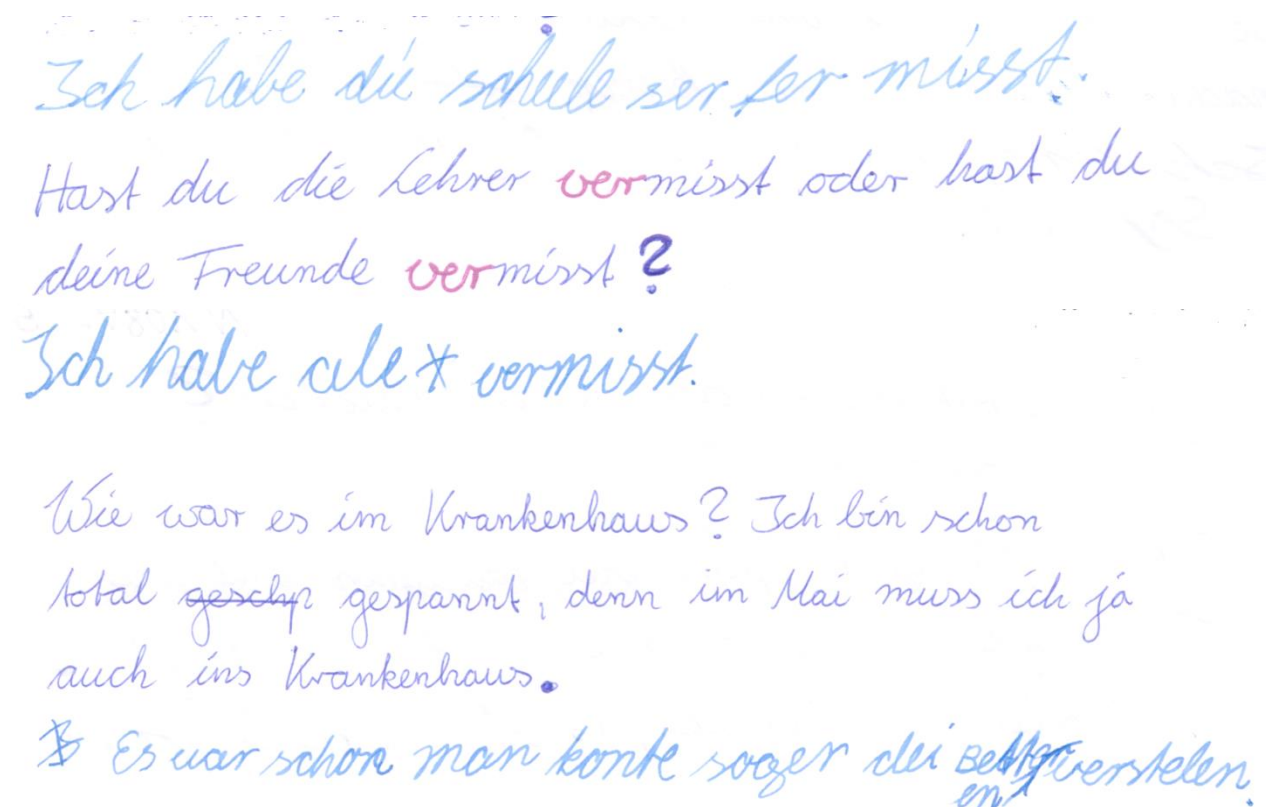 Ich habe die schule ser fer misst.
Hast du die Lehrer vermisst oder hast du
deine Freunde vermisst?
Ich habe ale * vermisst.
Wie war es im Krankenhaus? Ich bin schon
total gespannt, denn im Mai muss ich ja
auch ins Krankenhaus.
* Es war schon man konte soger dei verstelen.